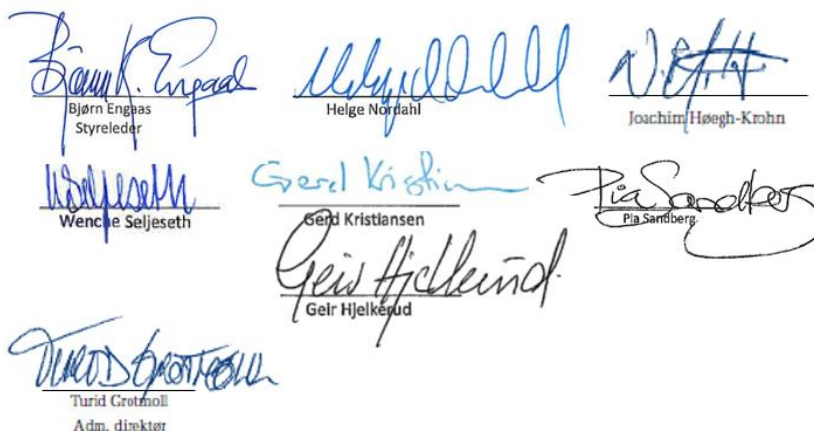 Bjørn K. Engaas
Bjørn Engaas
Styreleder
Helge Nordahl
Joachim Høegh-Krohn
WSeljeseth
Wenche Seljeseth
Gerd Kristiansen
Pia Sandberg
Pia Sandberg
Geir Hjelkerud
Geir Hjelkerud
TURID GROTMOLL
Turid Grotmoll
Adm. direktør